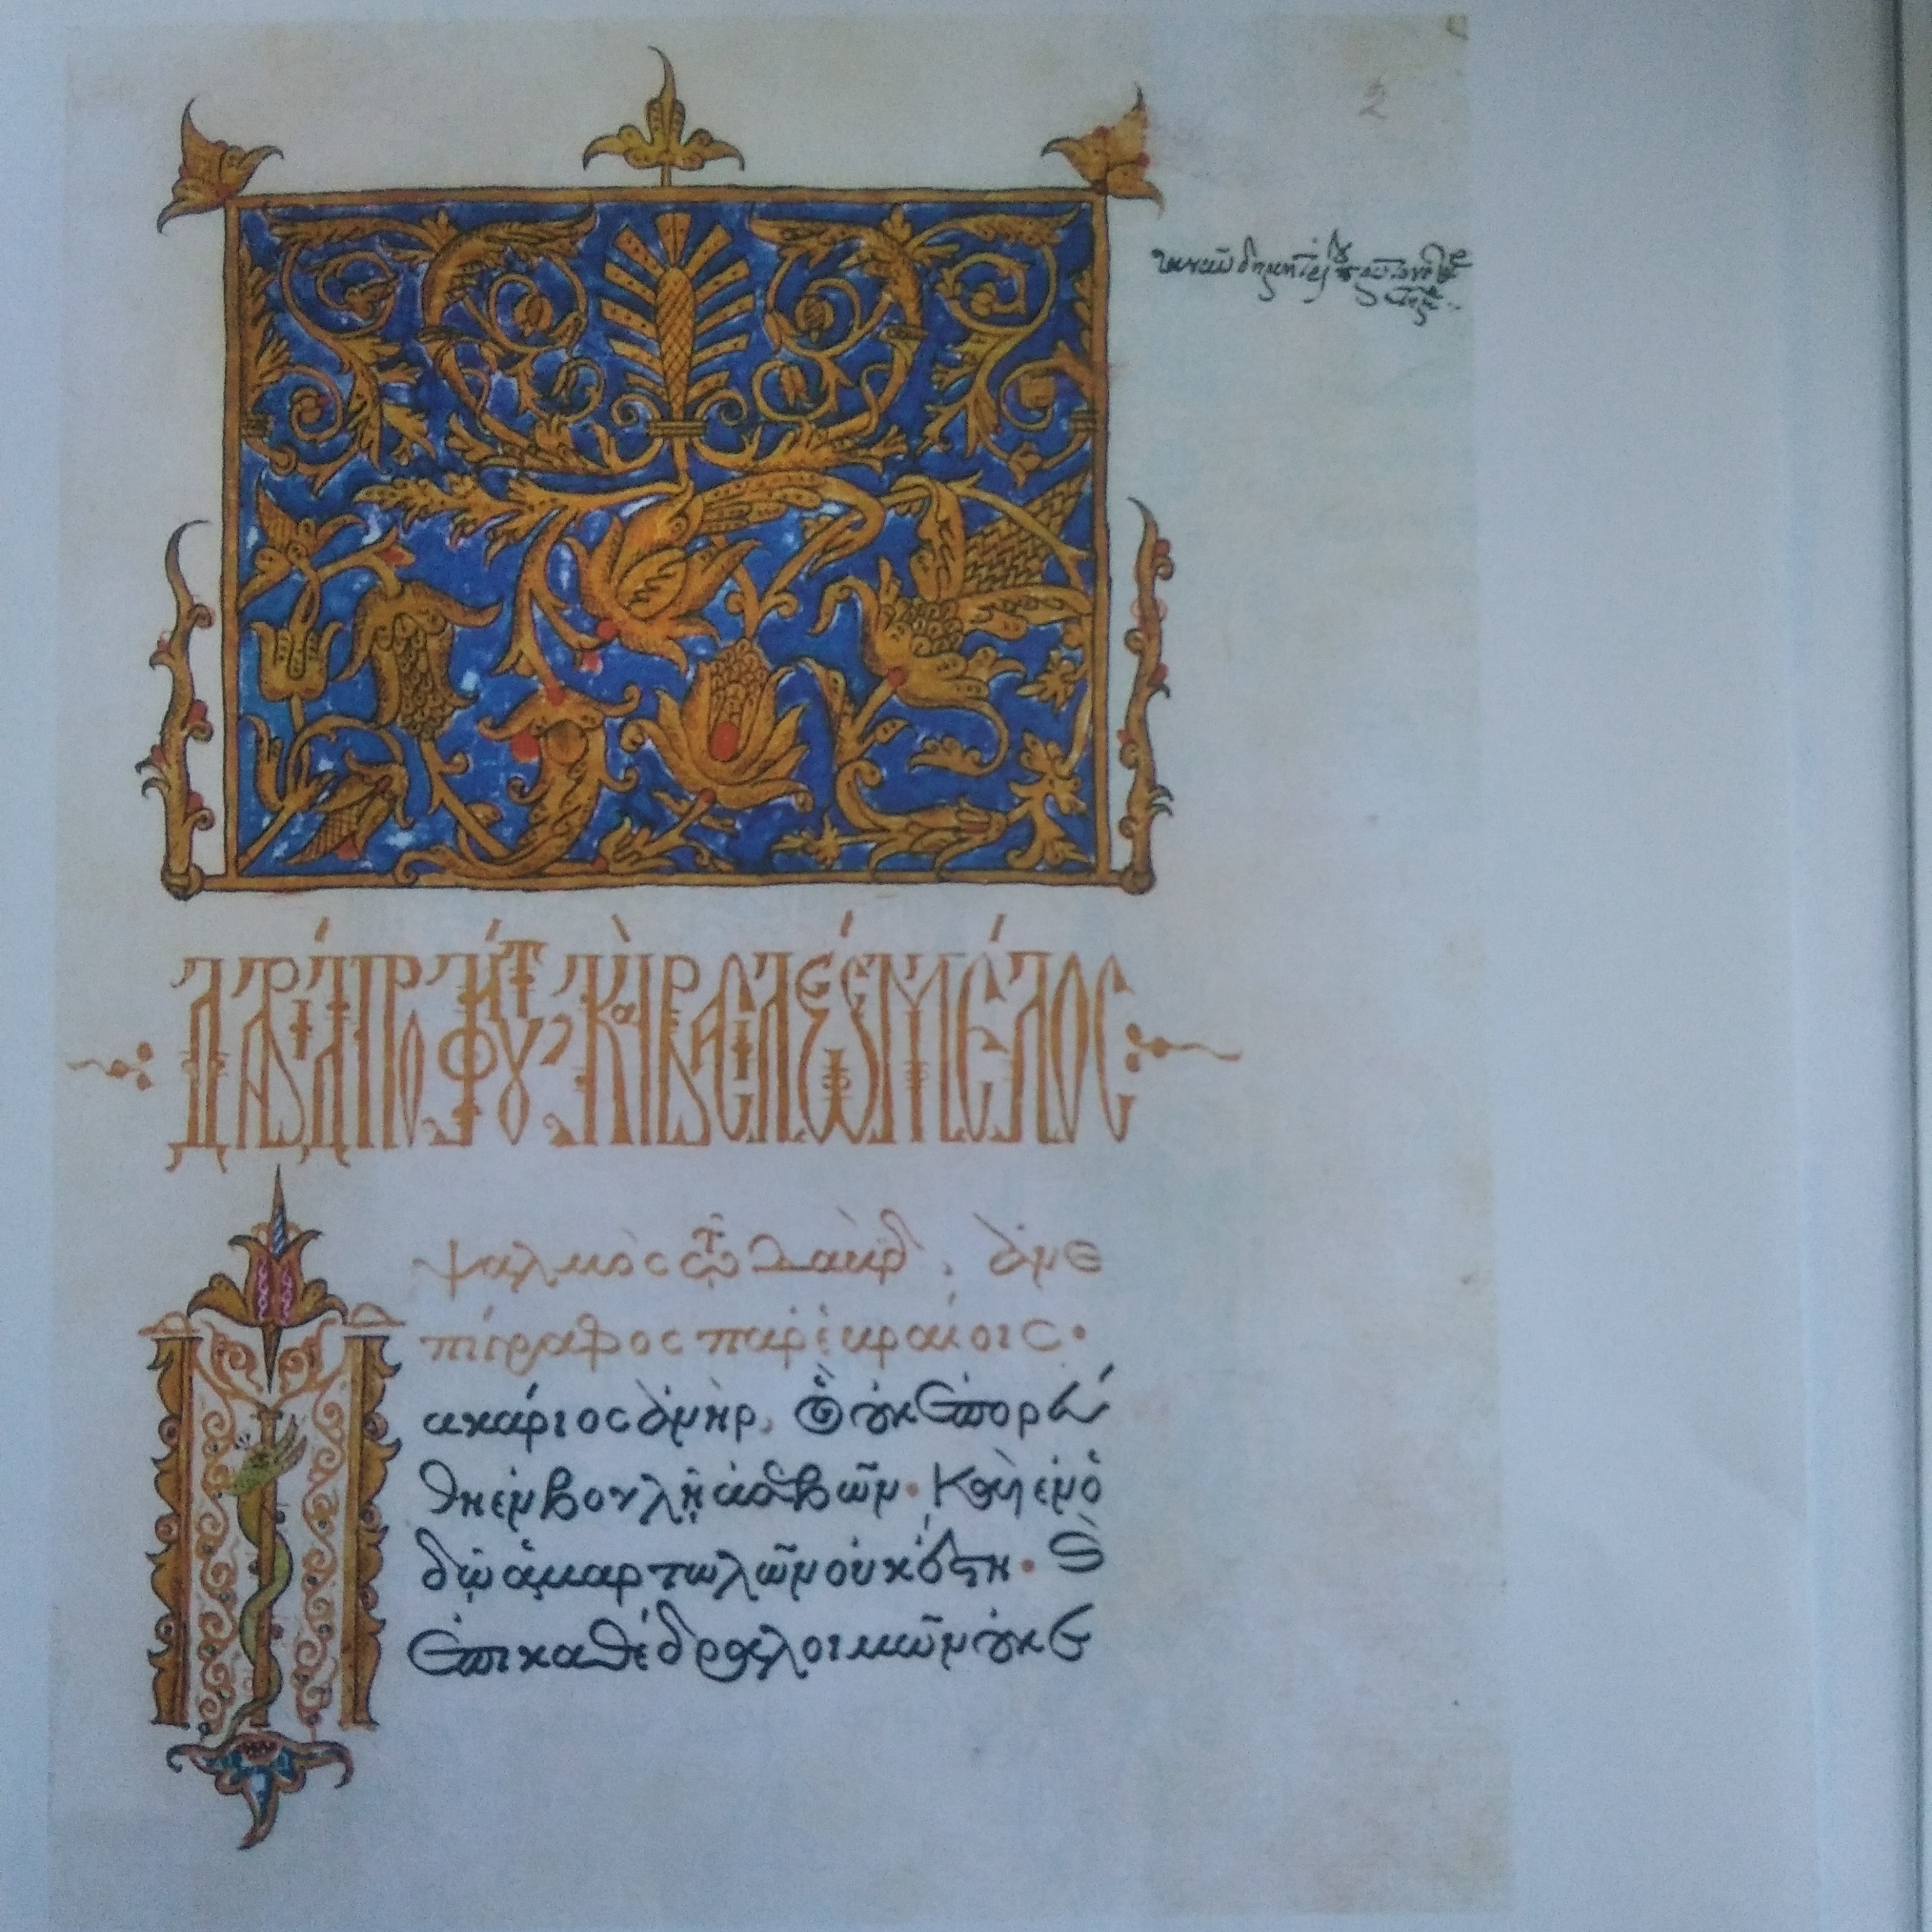 2
ΔΑΔ ΠΡΟΦΗΤΟΥ ΚΑῚ ΒΑΣΙΛΈΩΣ ΜΈΛΟΣ
ψαλμὸς τῶ δαυΐδ. ἀνε
πίγραφος παρ' ἑβραίοις·
ακάριος ἀνὴρ, ὃς οὐκ ἐπορεύ
θη ἐν βουλῇ ἀσεβῶν· καὶ ἐν ὁ
δῷ ἁμαρτωλῶν οὐκ ἔστη· καὶ
ἐπι καθέδρᾳ λοιμῶν οὐκ ἐ